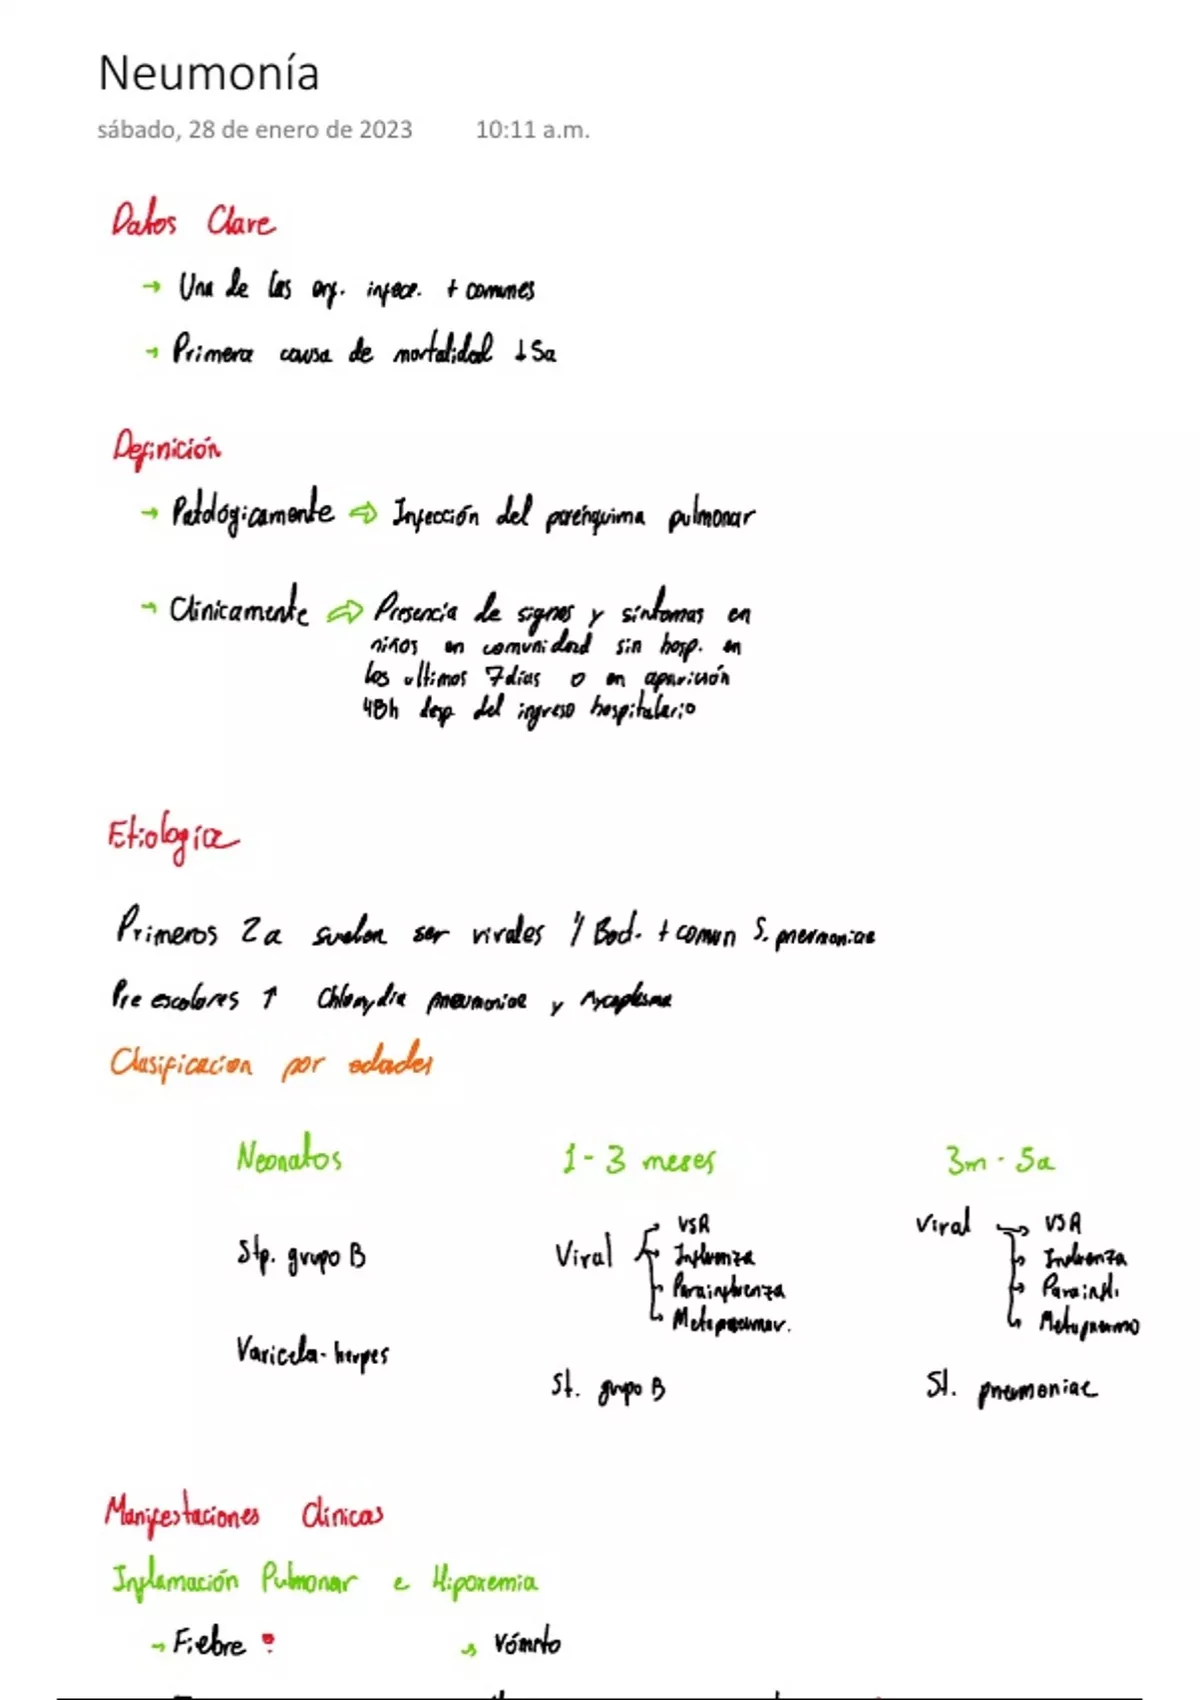 Neumonía
sábado, 28 de enero de 2023 10:11 a.m.
Datos Clave
→ Una de las enf. infecc. + comunes
→ Primera causa de mortalidad ↓5a
Definición
→ Patológicamente ⇨ Infección del parénquima pulmonar
→ Clínicamente ⇨ Presencia de signos y síntomas en
niños en comunidad sin hosp. en
los ultimos 7 días o en aparición
48h desp del ingreso hospitalario
Etiología
Primeros 2a suelen ser virales y Bact. + comun S. pneumoniae
Pre escolares ↑ Chlamydia pneumoniae y Mycoplasma
Clasificacion por edades
Neonatos 1-3 meses 3m - 5a
Stp. grupo B
Varicela-herpes
Viral VSR
Influenza
Parainfluenza
Metapneumov.
St. grupo B
Viral VSR
Influenza
Parainfl.
Metapneumo
St. pneumoniae
Manifestaciones Clínicas
Inflamación Pulmonar e Hipoxemia
→ Fiebre → Vómito